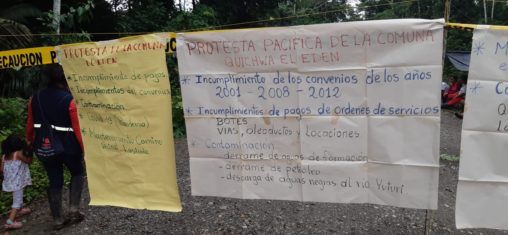 PRECAUCION
PROTESTA DE LA COMUNA
EL EDEN
* Incumplimiento de pagos
* Incumplimientos de convenios
* Contaminación
* Mantenimiento Camino
PROTESTA PACIFICA DE LA COMUNA
QUICHWA EL EDEN
* Incumplimiento de los convenios de los años
2001 - 2008 - 2012
* Incumplimientos de pagos de ordenes de servicios
BOTES
VIAS, oleoductos y Locaciones
* Contaminación
- derrame de aguas de formación
- derrame de petroleo
- descarga de aguas negras al río Yuturi
* M
* Co